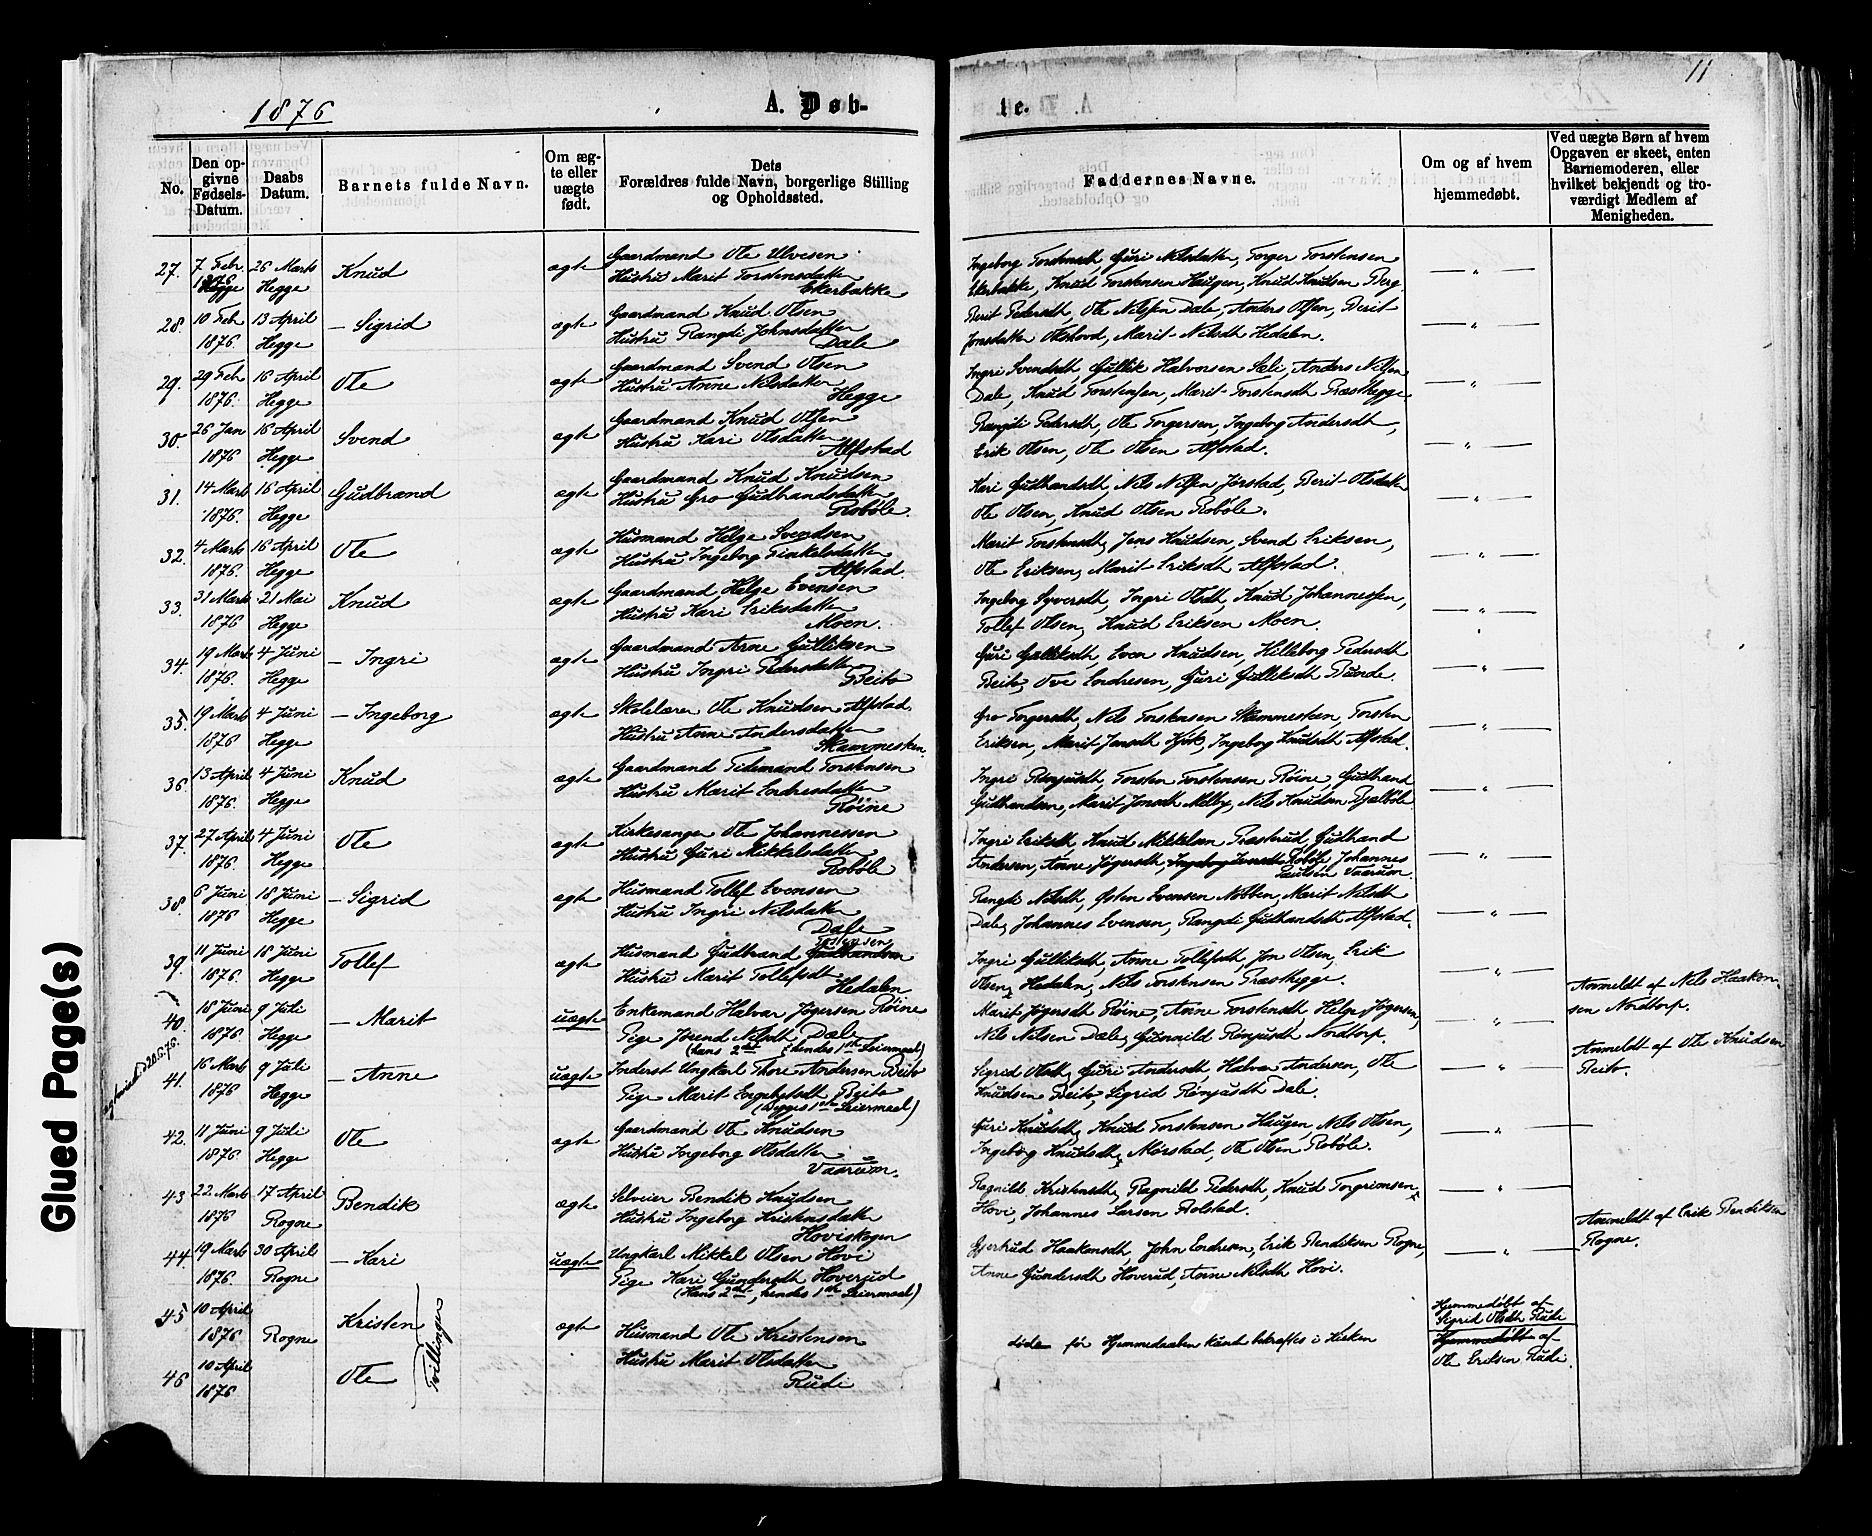 11
1876
A. Døb-
te.
No.
Den op-
givne
Fødsels-
Datum.
Daabs
Datum.
Barnets fulde Navn.
Om æg-
te eller
uægte
født.
Dets
Forældres fulde Navn, borgerlige Stilling
og Opholdssted.
Faddernes Navne.
Om og af hvem
hjemmedøbt.
Ved uægte Børn af hvem
Opgaven er skeet, enten
Barnemoderen, eller
hvilket bekjendt og tro-
værdigt Medlem af
Menigheden.
27. 7 Febr. 26 Marts Knud ægte Gaardmand Ole Ulvesen
1876 Hegge Hustru Marit Torstensdatter
Ekerbakke
Ingeborg Torstensdtr, Guri Nilsdatter, Torger Torstensen
Ekerbakke, Knud Torstensen Haugen, Knud Knudsen Berg
28. 10 Feb 13 April – Sigrid ægte Gaardmand Knud Olsen
1876. Hegge Hustru Rangdi Johnsdatter
Dale
Berit Pedersdtr, Ole Nilsen Dale, Anders Olsen, Berit
Jonsdatter Okshovd, Marit Nilsdtr Hedalen.
29. 29 Feb 16 April Ole ægte Gaardmand Svend Olsen
1876. Hegge Hustru Anne Nilsdatter
Hegge
Ingri Svendsdtr, Gullik Halvorsen Sæli, Anders Nilsen
Dale, Knud Torstensen, Marit Torstensdtr Præsthegge
30. 26 Jan 16 April Svend ægte Gaardmand Knud Olsen
1876 Hegge Hustru Kari Olsdatter
Alfstad
Rangdi Pedersdtr, Ole Torgersen, Ingeborg Andersdtr,
Erik Olsen, Ole Olsen Alfstad.
31. 14 Mart 16 April Gudbrand ægte Gaardmand Knud Knudsen
1876. Hegge Hustru Gro Gudbrandsdatter
Robøle.
Kari Gudbrandsdtr, Nils Nilsen Jorstad, Berit Olsdatter
Ole Olsen, Knud Olsen Robøle.
32. 4 Marts 16 April Ole ægte Husmand Helge Svendsen
1876. Hegge Hustru Ingeborg Tinkelsdatter
Alfstad.
Marit Torstensdtr, Jens Knudsen, Svend Eriksen,
Ole Eriksen, Marit Eriksdtr Alfstad.
33. 31 Marts 21 Mai Knud ægte Gaardmand Helge Evensen
1876 Hegge Hustru Kari Eriksdatter
Moen.
Ingeborg Syversdtr, Ingri Olsdtr, Knud Johannessen,
Tollef Olsen, Knud Eriksen Moen.
34. 19 Mart 4 Juni – Ingri ægte Gaardmand Arne Gulliksen
1876. Hegge Hustru Ingri Pedersdatter
Beito
Guri Gulliksdtr, Even Knudsen, Hilleborg Pedersdtr
Beito, Ove Endresen, Guri Gulliksdtr Bunde.
35. 19 Marts 4 Juni – Ingeborg ægte Skolelærer Ole Knudsen Alfstad
1876 Hegge Hustru Anne Andersdatter
Skammesten
Gro Torgersdtr, Nils Torstensen Skammesten, Torsten
Eriksen, Marit Jensdtr Kjøk, Ingeborg Knudsdtr Alfstad.
36. 13 April 4 Juni Knud ægte Gaardmand Tidemand Torstensen
1876. Hegge Hustru Marit Endresdatter
Røine
Ingri Rønjusdtr, Torsten Torstensen Røine, Gudbrand
Gudbrandsen, Marit Jonsdtr Melby, Nils Knudsen Bjælbøle
37. 27 April 4 Juni Ole ægte Kirkesanger Ole Johannessen
1876. Hegge Hustru Guri Mikkelsdatter
Robøle
Ingri Eriksdtr, Knud Mikkelsen Præstrud, Gudbrand
Andersen, Anne Jøgersdtr, Ingeborg Iversdtr Robøle, Johannes
Paulsen Vaarum.
38. 6 Juni 18 Juni – Sigrid ægte Husmand Tollef Evensen
1876 Hegge Hustru Ingri Nilsdatter
Dale
Rangdi Nilsdtr, Østen Evensen Nobben, Marit Nilsdtr
Dale, Johannes Evensen, Rangdi Gudbrandsdtr Alfstad.
39. 11 Juni 18 Juni Tollef ægte Husmand Gudbrand Gudbrandsen
1876. Hegge Hustru Marit Tollefsdtr
Hedalen
Ingri Gulliksdtr, Anne Tollefsdtr, Jon Olsen, Erik
Olsen, Hedalen, Nils Torstensen Præsthegge.
40. 18 Juni 9 Juli – Marit uægte Enkemand Halvor Jøgersen Røine
1876. Hegge Pige Jørend Nilsdtr Dale
(hans 2det, hendes 1ste Leiermaal)
Marit Jøgersdtr Røine, Anne Torstensdtr, Helge Jøgersen,
Nils Nilsen Dale, Gunnild Rønjusdtr Nordtorp.
Anmeldt af Nils Haakon-
sen Nordtorp.
41. 16 Mart 9 Juli – Anne uægte Inderst Ungkarl Thore Andersen Beito
1876 Hegge Pige Marit Engebretsdtr Beito
(Begges 1ste Leiermaal)
Sigrid Olsdtr, Guri Andersdtr, Halvor Andersen, Ole
Knudsen Beito, Sigrid Rønjusdtr Dale.
Anmeldt af Ole Knudsen
Beito.
42. 11 Juni 9 Juli Ole ægte Gaardmand Ole Knudsen
1876 Hegge Hustru Ingeborg Olsdatter
Vaarum.
Guri Knudsdtr, Knud Torstensen Haugen, Nils Olsen,
Ingeborg Knudsdtr, Mørstad, Ole Olsen Robøle.
43 22 Mart 17 April Bendik ægte Selveier Bendik Knudsen
1876 Rogne Hustru Ingeborg Kristensdatter
Hoviskogen
Ragnild Kristensdtr, Ragnild Pedersdtr, Knud Torgrimsen
Hovi, Johannes Larsen Bolstad.
44. 19 Mart 30 April – Kari uægte Ungkarl Mikkel Olsen Hovi
1876. Rogne Pige Kari Gundersdtr Hoverud
(Hans 2det, hendes 1ste Leiermaal)
Gjertrud Haakonsdtr, John Endresen, Erik Bendiksen Rogne,
Anne Gundersdtr Hoverud, Anne Nilsdtr Hovi.
Anmeldt af Erik Bendiksen
Rogne.
45 10 April Kristen ægte
1876 Rogne Husmand Ole Kristensen
Hustru Marit Olsdatter
Rudi
døde før Hjemmedaaben kunde bekræftes i Kirken
Hjemmedøbt af
Sigrid Olsdtr Rudi
46 10 April Ole
1876
Tvillinger
Hjemmedøbt af
Ole Eriksen Rudi.
Glued Page(s)